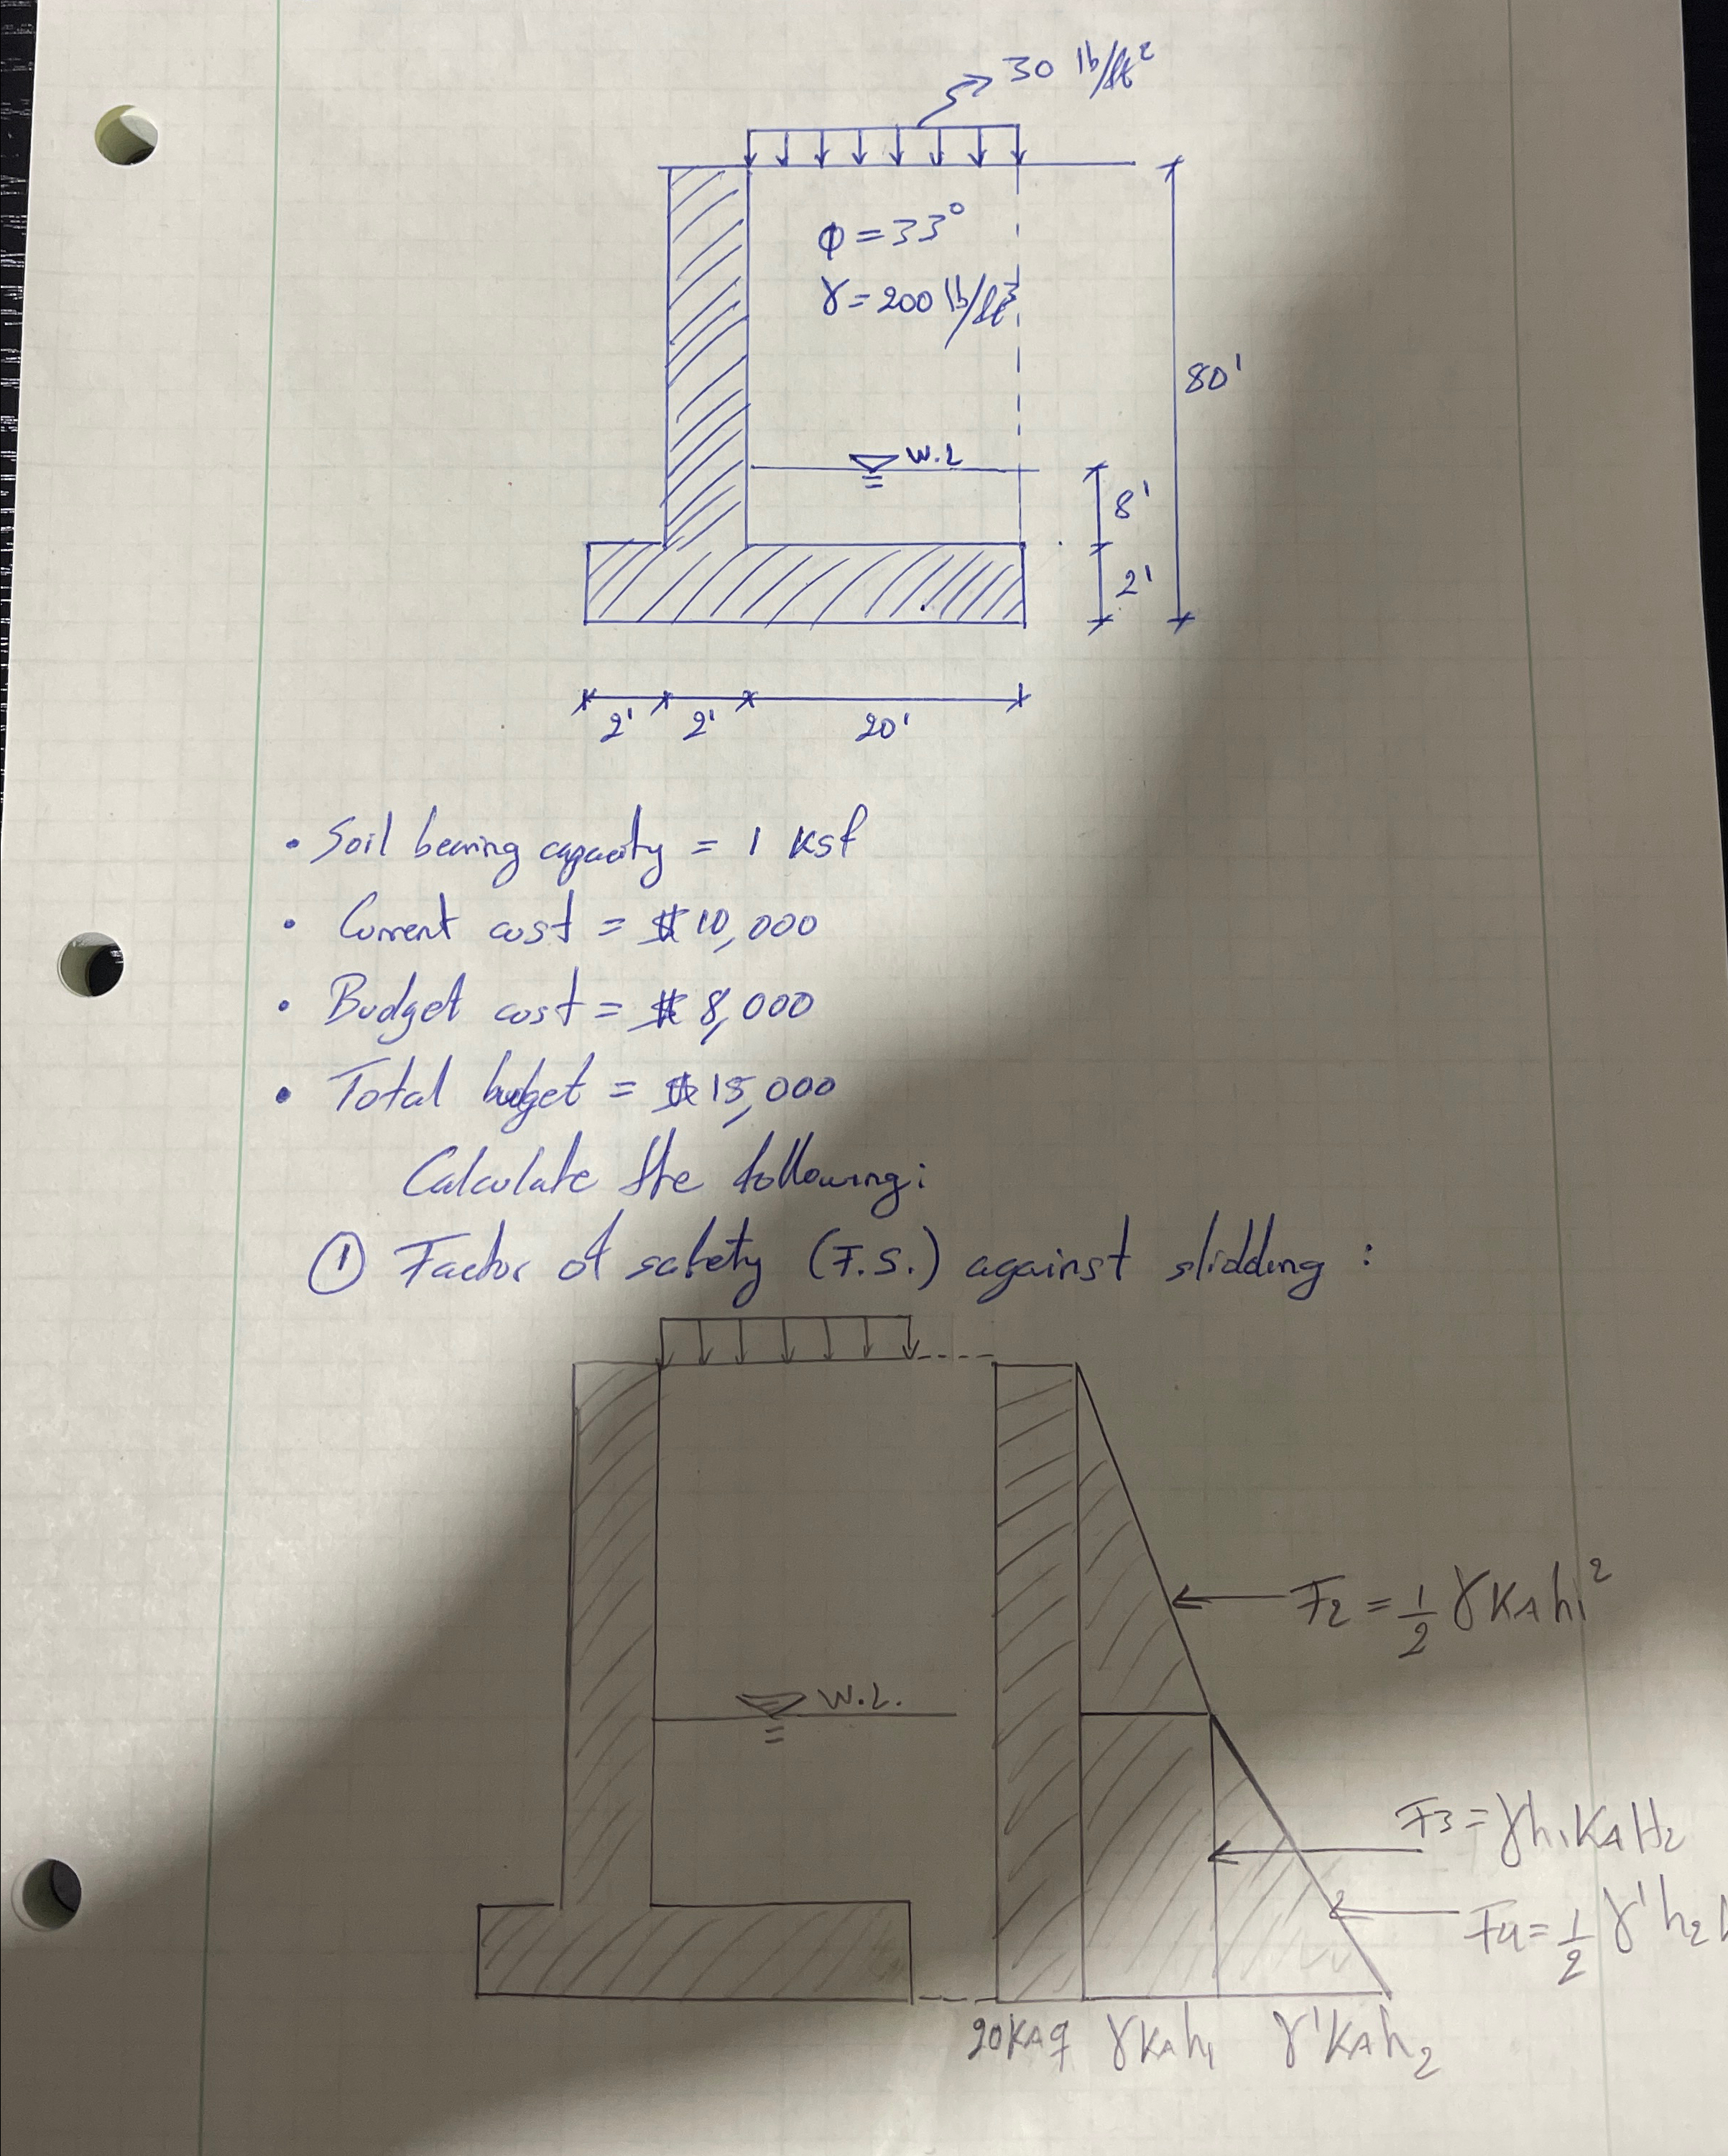 30 lb/ft²
ϕ = 33°
γ = 200 lb/ft³
80'
W.L
8'
2'
2' 2' 20'
• Soil bearing capacity = 1 Ksf
• Current cost = $ 10,000
• Budget cost = $ 8,000
• Total budget = $ 15,000
Calculate the following:
① Factor of safety (F.S.) against slidding :
F2 = 1/2 γ KA h1²
W.L.
F3 = γ h1 KA H2
F4 = 1/2 γ' h2
20KAq γKAh1 γ'KAh2